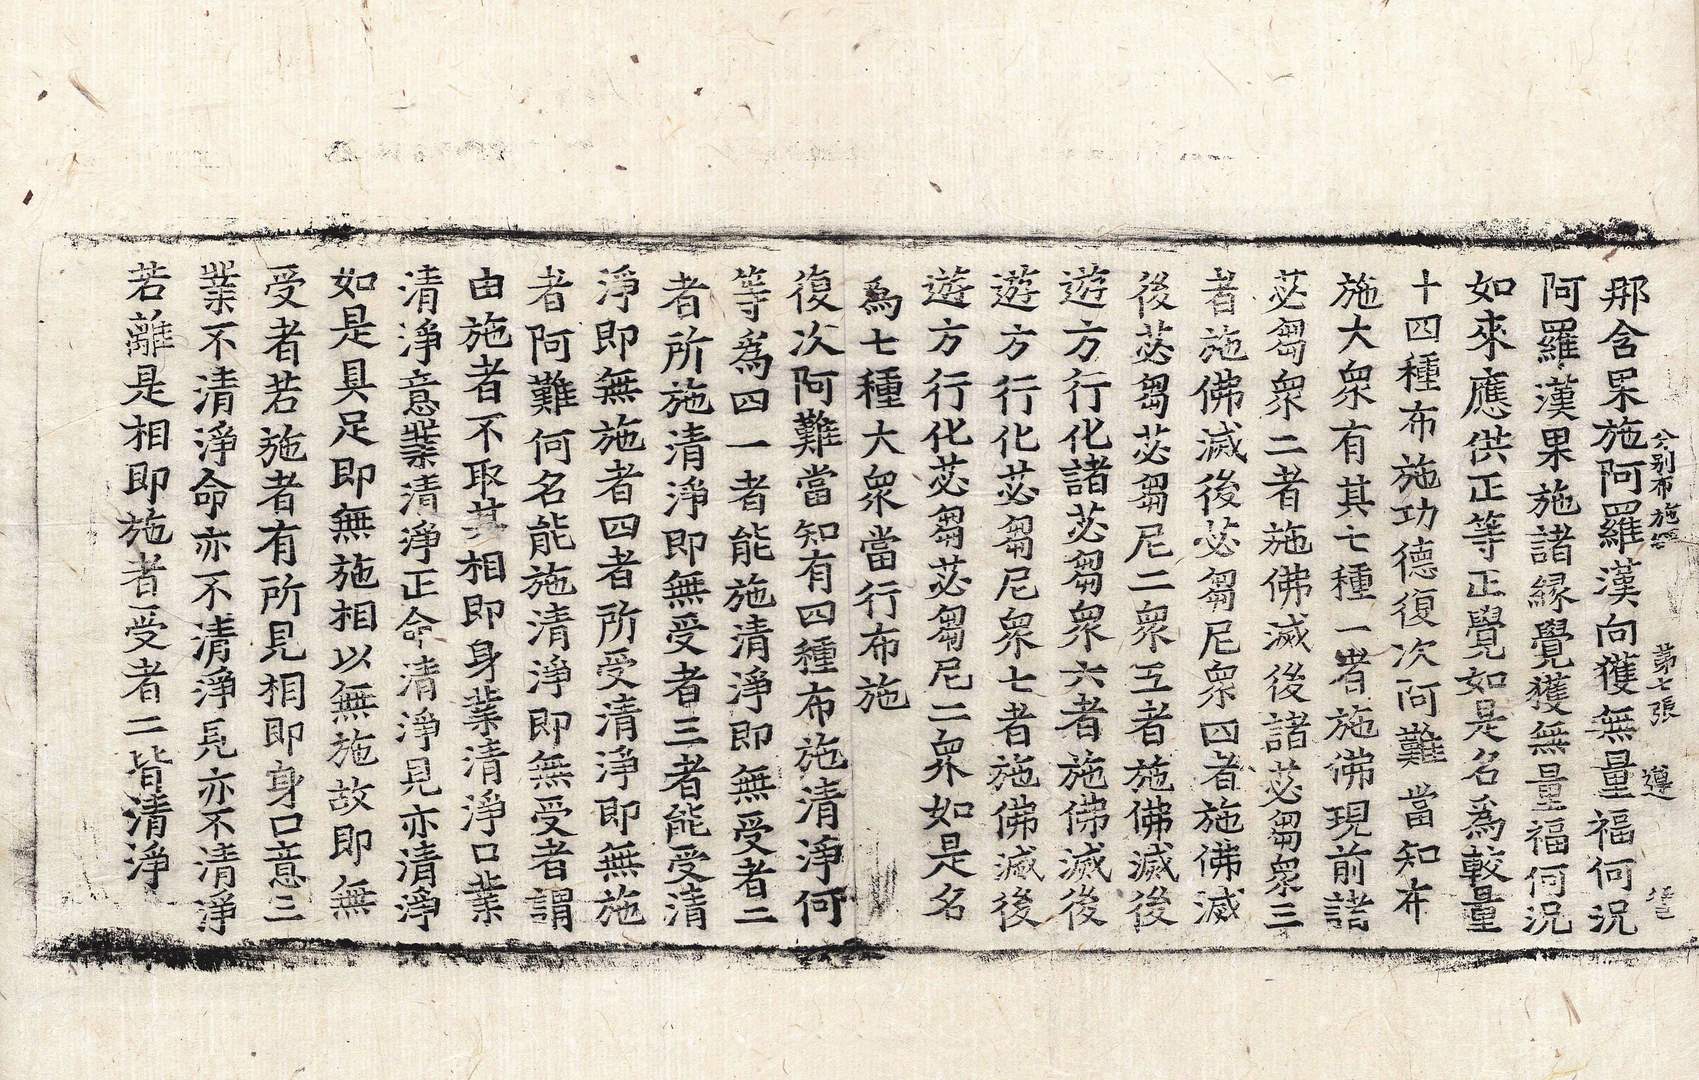 分別布施經 第七張 遵
那含果施阿羅漢向獲無量福何況
阿羅漢果施諸緣覺獲無量福何況
如來應供正等正覺如是名為較量
十四種布施功德復次阿難當知布
施大衆有其七種一者施佛現前諸
苾芻衆二者施佛滅後諸苾芻衆三
者施佛滅後苾芻尼衆四者施佛滅
後苾芻苾芻尼二衆五者施佛滅後
遊方行化諸苾芻衆六者施佛滅後
遊方行化苾芻尼衆七者施佛滅後
遊方行化苾芻苾芻尼二衆如是名
爲七種大衆當行布施
復次阿難當知有四種布施清淨何
等爲四一者能施清淨即無受者二
者所施清淨即無受者三者能受清
淨即無施者四者所受清淨即無施
者阿難何名能施清淨即無受者謂
由施者不取其相即身業清淨口業
清淨意業清淨正命清淨見亦清淨
如是具足即無施相以無施故即無
受者若施者有所見相即身口意三
業不清淨命亦不清淨見亦不清淨
若離是相即施者受者二皆清淨